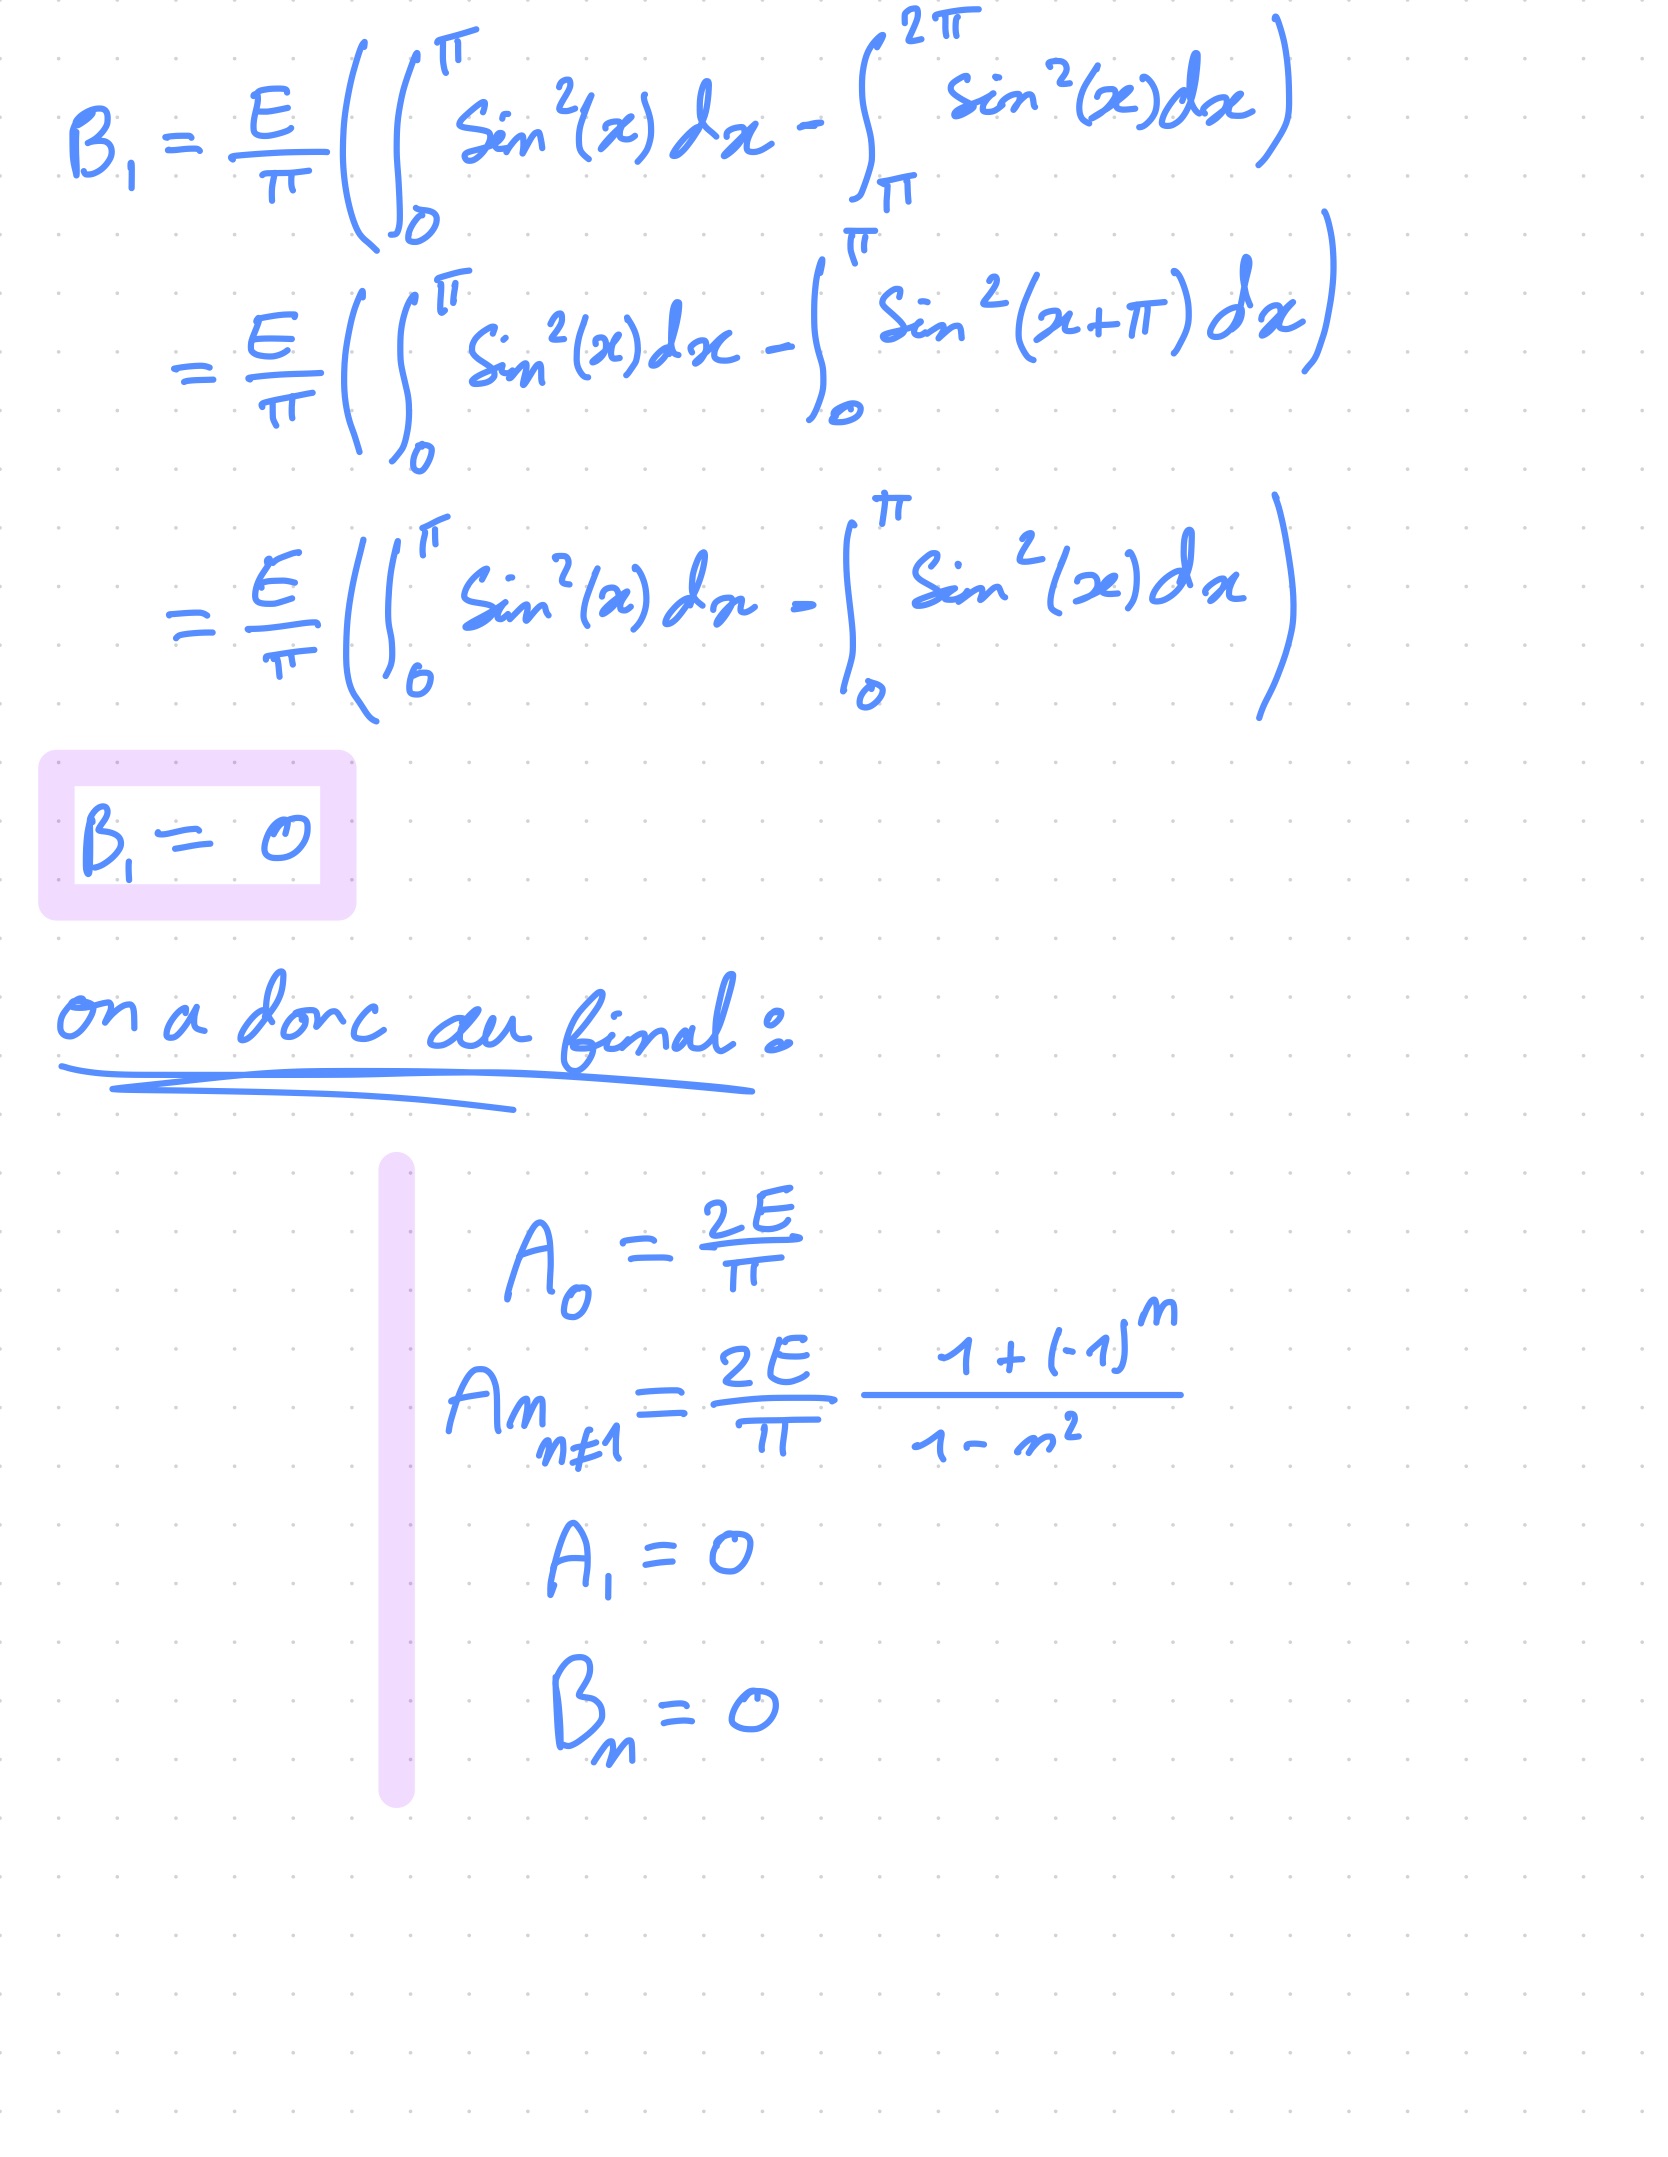 B₁ = E/π ( ∫₀^π sin²(x) dx - ∫_π^2π sin²(x) dx )
= E/π ( ∫₀^π sin²(x) dx - ∫₀^π sin²(x+π) dx )
= E/π ( ∫₀^π sin²(x) dx - ∫₀^π sin²(x) dx )
B₁ = 0
on a donc au final :
A₀ = 2E/π
Aₙ n≠1 = 2E/π (1 + (-1)ⁿ)/(1 - n²)
A₁ = 0
Bₙ = 0